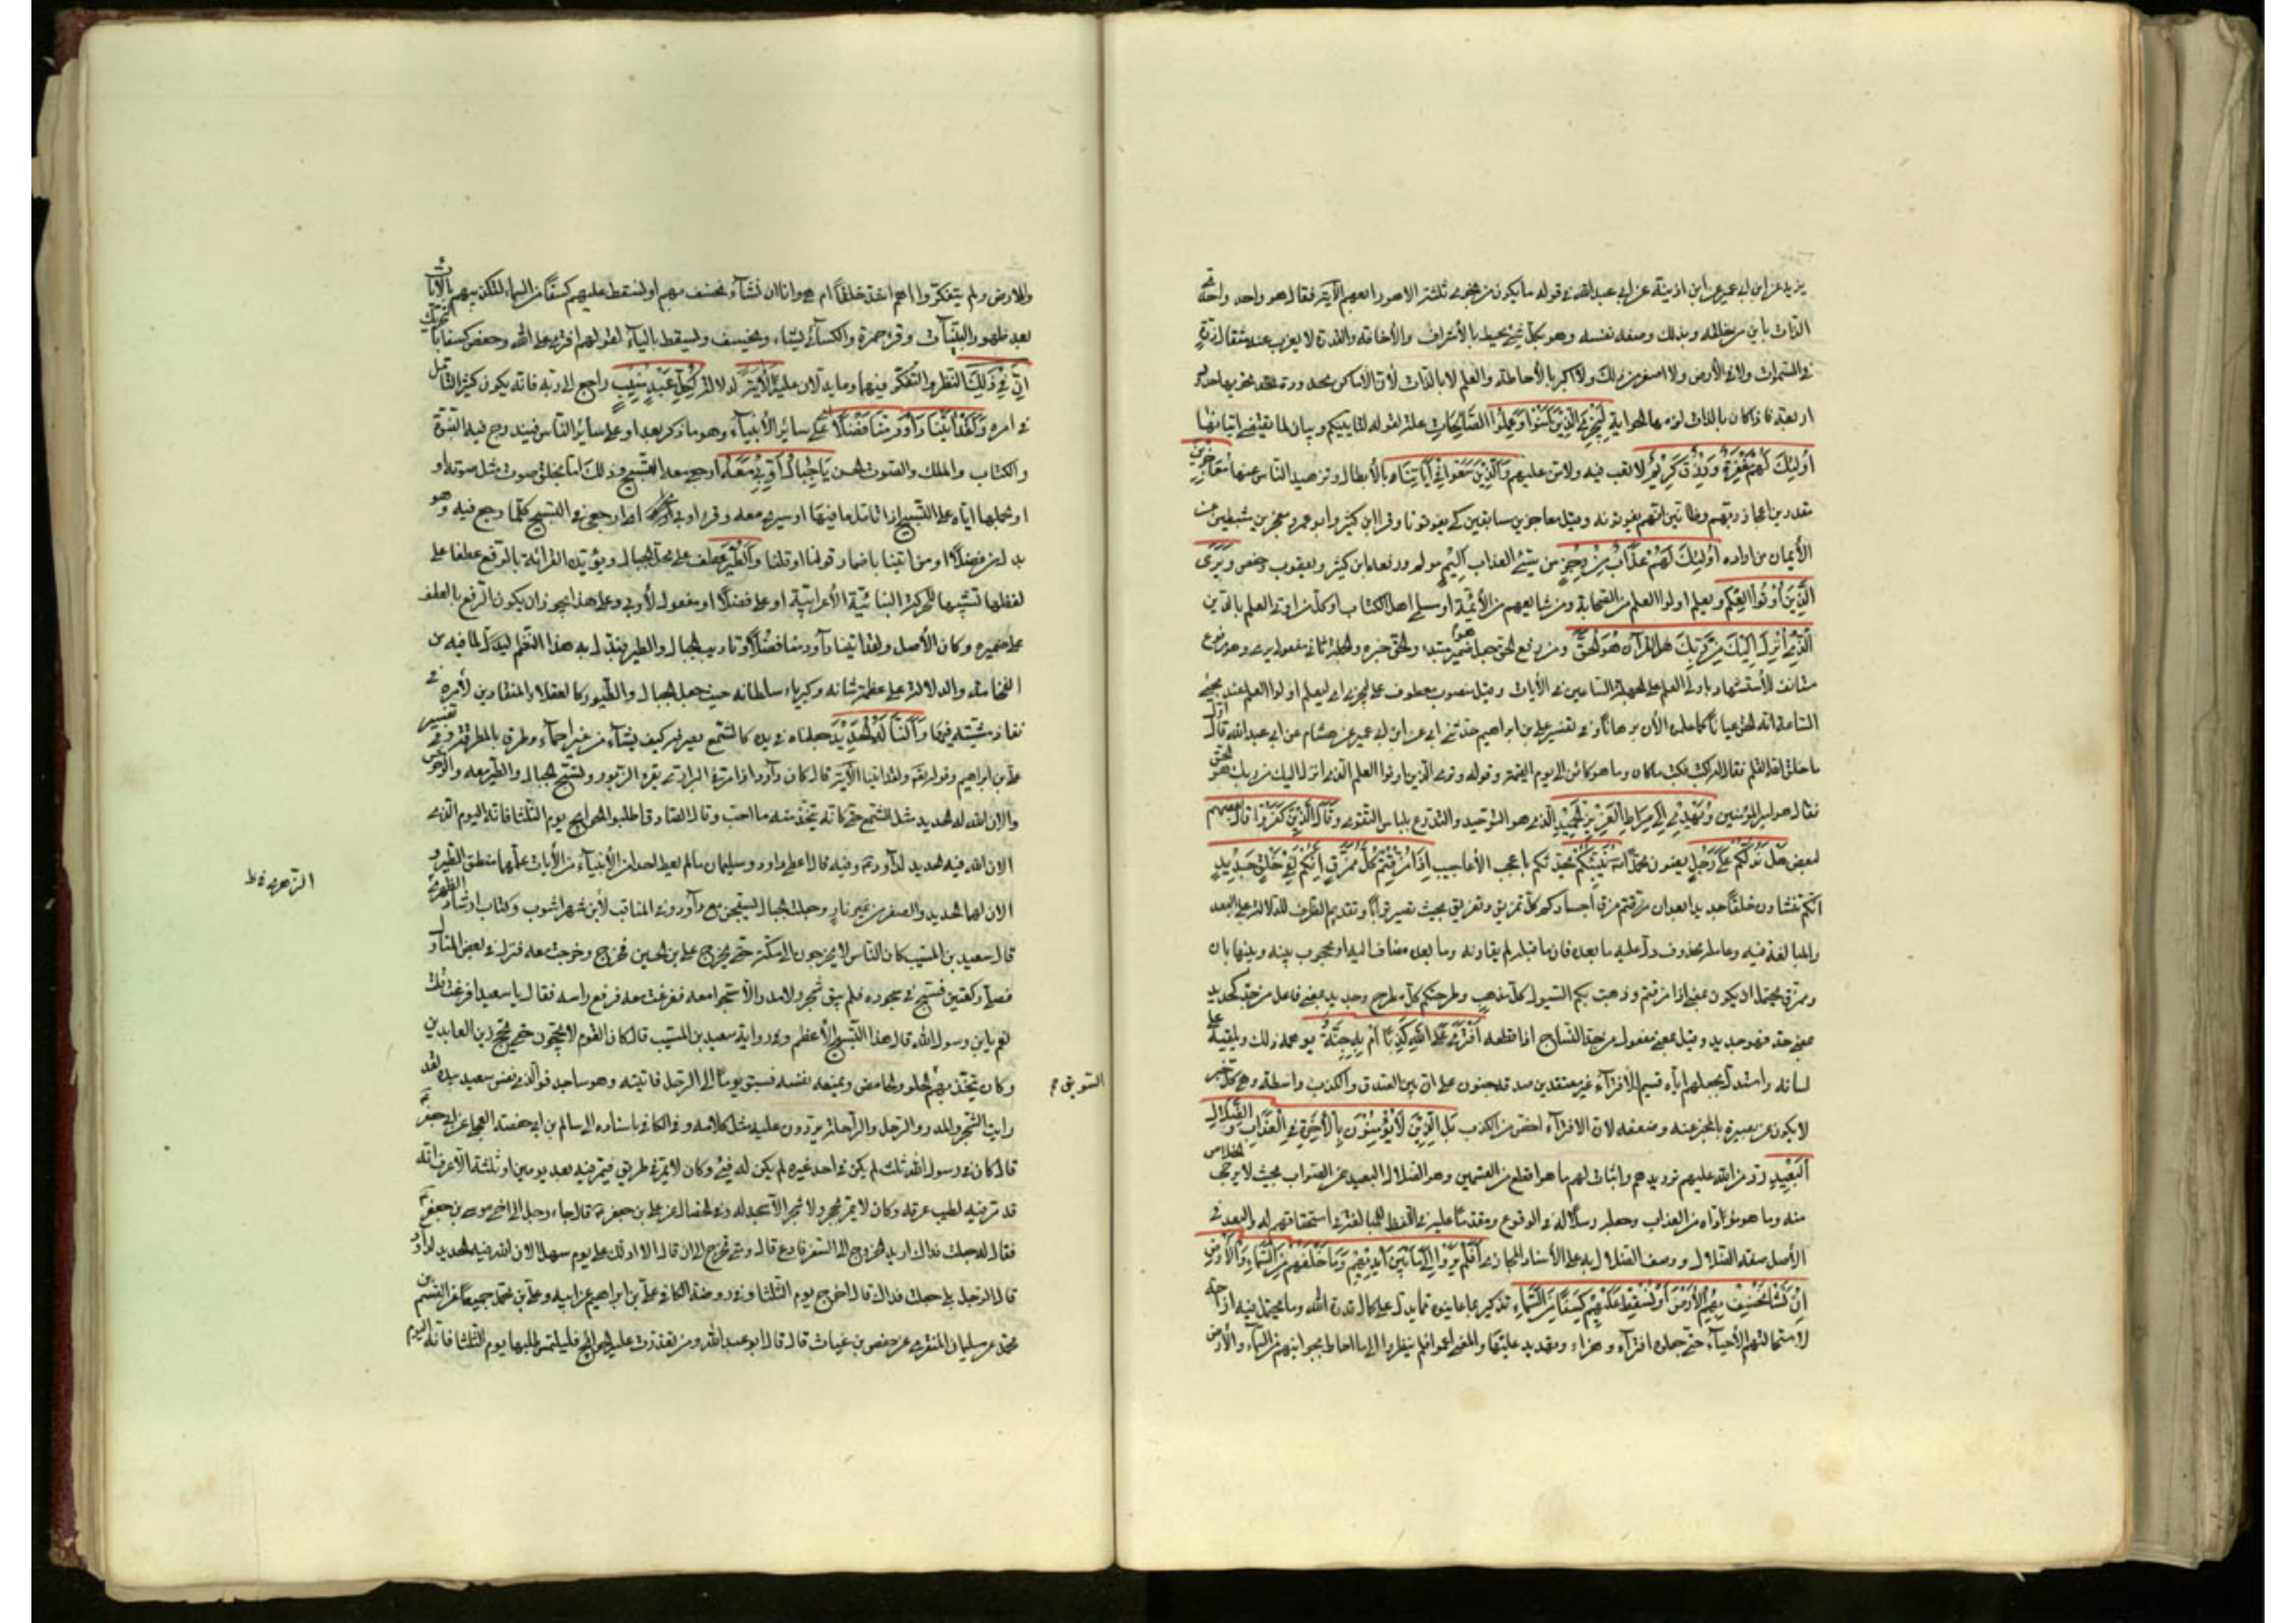 يزيد عن ابن ابى عمير عن ابن اذينة عن ابى عبد الله فى قوله ما يكون من نجوى ثلثة الا هو رابعهم الآية فقال هو واحد واحدى
الذات باين من خلقه وبذلك وصف نفسه وهو بكل شئ محيط بالأشراف والأحاطة والقدرة لا يعزب عنه مثقال ذرة
فى السموات ولا فى الأرض ولا اصغر من ذلك ولا اكبر بالأحاطة والعلم لا بالذات لأن الأماكن محدودة تحتويها حدود
اربعة فاذا كان بالذات لزمه الحواية لِيَجْزِىَ الَّذِينَ آمَنُوا وَعَمِلُوا الصَّالِحَاتِ علة لقوله لتأتينكم وبيان لما يقتضى اتيانها
أُولئِكَ لَهُمْ مَغْفِرَةٌ وَرِزْقٌ كَرِيمٌ لا تعب فيه ولا من عليهم وَالَّذِينَ سَعَوْا فِى آيَاتِنَا بالأبطال وتزهيد الناس عنها مُعَاجِزِينَ
مقدرين اعجاز ربهم وظانين انهم يفوتونه وقيل معاجزين سابقين كى يفوتونا وقرا ابن كثير وابو عمرو معجزين مثبطين عن
الأيمان من اراده أُولئِكَ لَهُمْ عَذَابٌ مِنْ رِجْزٍ من سيئ العذاب أَلِيمٌ مولم ورفعه ابن كثير ويعقوب وحفص وَيَرَى
الَّذِينَ أُوتُوا الْعِلْمَ ويعلم اولوا العلم من الصحابة ومن شايعهم من الأمة او مسلمى اهل الكتاب او كل من اوتى العلم بالدين
الَّذِى أُنْزِلَ إِلَيْكَ مِنْ رَبِّكَ هو القرآن هُوَ الْحَقَّ ومن رفع الحق جعل هو ضمير مبتدا والحق خبره والجملة ثانى مفعولى يرى وهو مرفوع
مستانف للأستشهاد باولى العلم على الجهلة الساعين فى الأيات وقيل منصوب معطوف على ليجزى اى ليعلم اولوا العلم عند مجئ
الساعة انه الحق عيانا كما علموه الأن برهانا وفى تفسير على بن ابراهيم حدثنى ابى عن ابن ابى عمير عن هشام عن ابى عبد الله قال اول
ما خلق الله القلم فقال له اكتب فكتب ما كان وما هو كائن الى يوم القيمة وقوله وترى الذين اوتوا العلم الذى انزل اليك من ربك هو الحق
فقال هو امير المؤمنين وَيَهْدِى إِلى صِرَاطِ الْعَزِيزِ الْحَمِيدِ الذى هو التوحيد والتدرع بلباس التقوى وَقَالَ الَّذِينَ كَفَرُوا قال بعضهم
لبعض هَلْ نَدُلُّكُمْ عَلى رَجُلٍ يعنون محمدا يُنَبِّئُكُمْ يحدثكم باعجب الأعاجيب إِذَا مُزِّقْتُمْ كُلَّ مُمَزَّقٍ إِنَّكُمْ لَفِى خَلْقٍ جَدِيدٍ
انكم تنشاون خلقا جديدا بعد ان مزقتم مزق اجسادكم كل تمزيق وتفريق بحيث تصير ترابا وتقديم الظرف للدلالة على البعد
والمبالغة فيه وعامله محذوف دل عليه ما بعده فان ما قبله لم يقارنه وما بعده مضاف اليه او محجوب بينه وبينها بان
وممزق يحتمل ان يكون بمعنى اذا مزقتم وذهبت بكم السيول كل مذهب وطرحتكم كل مطرح وجديد بمعنى فاعل من جد كحديد
بمعنى حد فهو حديد وقيل بمعنى مفعول من جد النساج اذا قطعه أَفْتَرى عَلَى اللهِ كَذِبًا أَمْ بِهِ جِنَّةٌ يوهمه ذلك ويلقيه على
لسانه واستدل بجعلهم اياه قسيم الأفتراء غير معتقدين صدقه جنون على ان بين الصدق والكذب واسطة وهى كل خبر
لا يكون عن بصيرة بالمخبر عنه وضعفه لان الافتراء اخص من الكذب بَلِ الَّذِينَ لَا يُؤْمِنُونَ بِالْآخِرَةِ فِى الْعَذَابِ وَالضَّلَالِ
الْبَعِيدِ رد من الله عليهم ترديدهم واثبات لهم ما هو افظع من القسمين وهو الضلال البعيد عن الصواب بحيث لا يرجى الخلاص
منه وما هو مؤداه من العذاب وجعله رسيلا له فى الوقوع ومقدما عليه فى اللفظ للمبالغة فى استحقاقهم له والبعد فى
الأصل صفة الضلال ووصف الضلال به على الأسناد المجازى أَفَلَمْ يَرَوْا إِلى مَا بَيْنَ أَيْدِيهِمْ وَمَا خَلْفَهُمْ مِنَ السَّمَاءِ وَالْأَرْضِ
إِنْ نَشَأْ نَخْسِفْ بِهِمُ الْأَرْضَ أَوْ نُسْقِطْ عَلَيْهِمْ كِسَفًا مِنَ السَّمَاءِ تذكير بما عاينوه مما يدل على كمال قدرة الله وما يحتمل فيه ازاحة
لاستحالتهم الأحياء حتى جعلوه افتراء وهزاء وتهديد عليها والمعنى اعموا فلم ينظروا الى ما احاط بجوانبهم من السماء والأرض
والارض ولم يتفكروا اهم اشد خلقا ام هى وانا ان نشاء نخسف بهم او نسقط عليهم كسفا من السماء لتكذيبهم بالآيات
بعد ظهور البينات وقرء حمزة والكسائى يشاء ويخسف ويسقط بالياء لقوله افترى على الله وحفص كسفا بالتحريك
إِنَّ فِى ذلِكَ النظر والتفكر فيهما وما يدلان عليه لَآيَةً لدلالة لِكُلِّ عَبْدٍ مُنِيبٍ راجع الى ربه فانه يكون كثير التأمل
فى امره وَلَقَدْ آتَيْنَا دَاوُدَ مِنَّا فَضْلًا اى على سائر الأنبياء وهو ما ذكر بعد او على سائر الناس فيندرج فيه النبوة
والكتاب والملك والصوت الحسن يَا جِبَالُ أَوِّبِى مَعَهُ ارجعى معه التسبيح وذلك اما بخلق صوت مثل صوته او
او بحملها اياه على التسبيح اذا تامل ما فيها او سيرى معه وقرء اوبى من الأوب اى ارجعى فى التسبيح كلما رجع فيه وهو
بدل من فضلا او من اتينا باضمار قولنا او قلنا وَالطَّيْرَ عطف على محل الجبال ويؤيده القرائة بالرفع عطفا على
لفظها تشبيها للحركة البنائية الأعرابية او على فضلا او مفعول لأوبى وعلى هذا يجوز ان يكون الرفع بالعطف
على ضميره وكان الأصل ولقد اتينا داود منا فضلا تاويب الجبال والطير فبدل به هذا النظم ليدل لما فيه من
الفخامة والدلالة على عظمة شانه وكبرياء سلطانه حيث جعل الجبال والطيور كالعقلاء المنقادين لأمره فى
نفاذ مشيته فيها وَأَلَنَّا لَهُ الْحَدِيدَ جعلناه فى يده كالشمع يصرفه كيف يشاء من غير احماء وطرق بالمطرقة وفى تفسير
على بن ابراهيم وقوله تعالى ولقد اتينا الآية قال كان داود اذا مر فى البرارى يقرء الزبور وتسبح الجبال والطير معه والوحوش
والان الله له الحديد مثل الشمع حتى كان يتخذ منه ما احب وقال الصادق اطلبوا الحوائج يوم الثلثا فانه اليوم الذى
الان الله فيه الحديد لداود وفيه قال اعطى داود وسليمان ما لم يعط احد من الأنبياء من الآيات علمهما منطق الطير و
الان لهما الحديد والصفر من غير نار وجعلت الجبال يسبحن مع داود وفى المناقب لأبن شهراشوب وكتاب ارشاد الزهرى
قال سعيد بن المسيب كان الناس لا يخرجون الى مكة حتى يخرج على بن الحسين فخرج وخرجت معه فنزل فى بعض المنازل
فصلى ركعتين فسبح فى سجوده فلم يبق شجر ولا مدر الا سبحوا معه ففزعت منه فرفع راسه فقال يا سعيد افزعت قلت
نعم يابن رسول الله قال هذا التسبيح الأعظم وفى رواية سعيد بن المسيب قال كان القوم لا يحجون حتى يحج زين العابدين
وكان يتخذ لهم الحلو والحامض ويمنعه نفسه فسبق يوما الى الرحل فاتيته وهو ساجد فو الذى نفس سعيد بيده لقد
رايت الشجر والمدر والرحل والراحلة يردون عليه مثل كلامه وفى الكافى باسناده الى سالم بن ابى حفصة العجلى عن ابى جعفر
قال كان فى رسول الله ثلث لم يكن فى احد غيره لم يكن له فئ وكان لا يمر فى طريق فيمر فيه بعد يومين او ثلثة الا عرف انه
قد مر فيه لطيب عرفه وكان لا يمر بحجر ولا شجر الا سجد له وفى الخصال عن على بن جعفر قال جاء رجل الى اخى موسى بن جعفر
فقال له جعلت فداك اريد الخروج الى السفر فادع قال ومتى تخرج الى ان قال الا ادلك على يوم سهل الان الله فيه الحديد لداود
قال الرجل بلى جعلت فداك قال اخرج يوم الثلثا وفى روضة الكافى على بن ابراهيم عن ابيه وعلى بن محمد جميعا عن القسم بن
محمد عن سليمان المنقرى عن حفص بن غياث قال قال ابو عبد الله ومن تعذرت عليه الحوائج فليلتمس طلبها يوم الثلثا فانه اليوم
السويق م